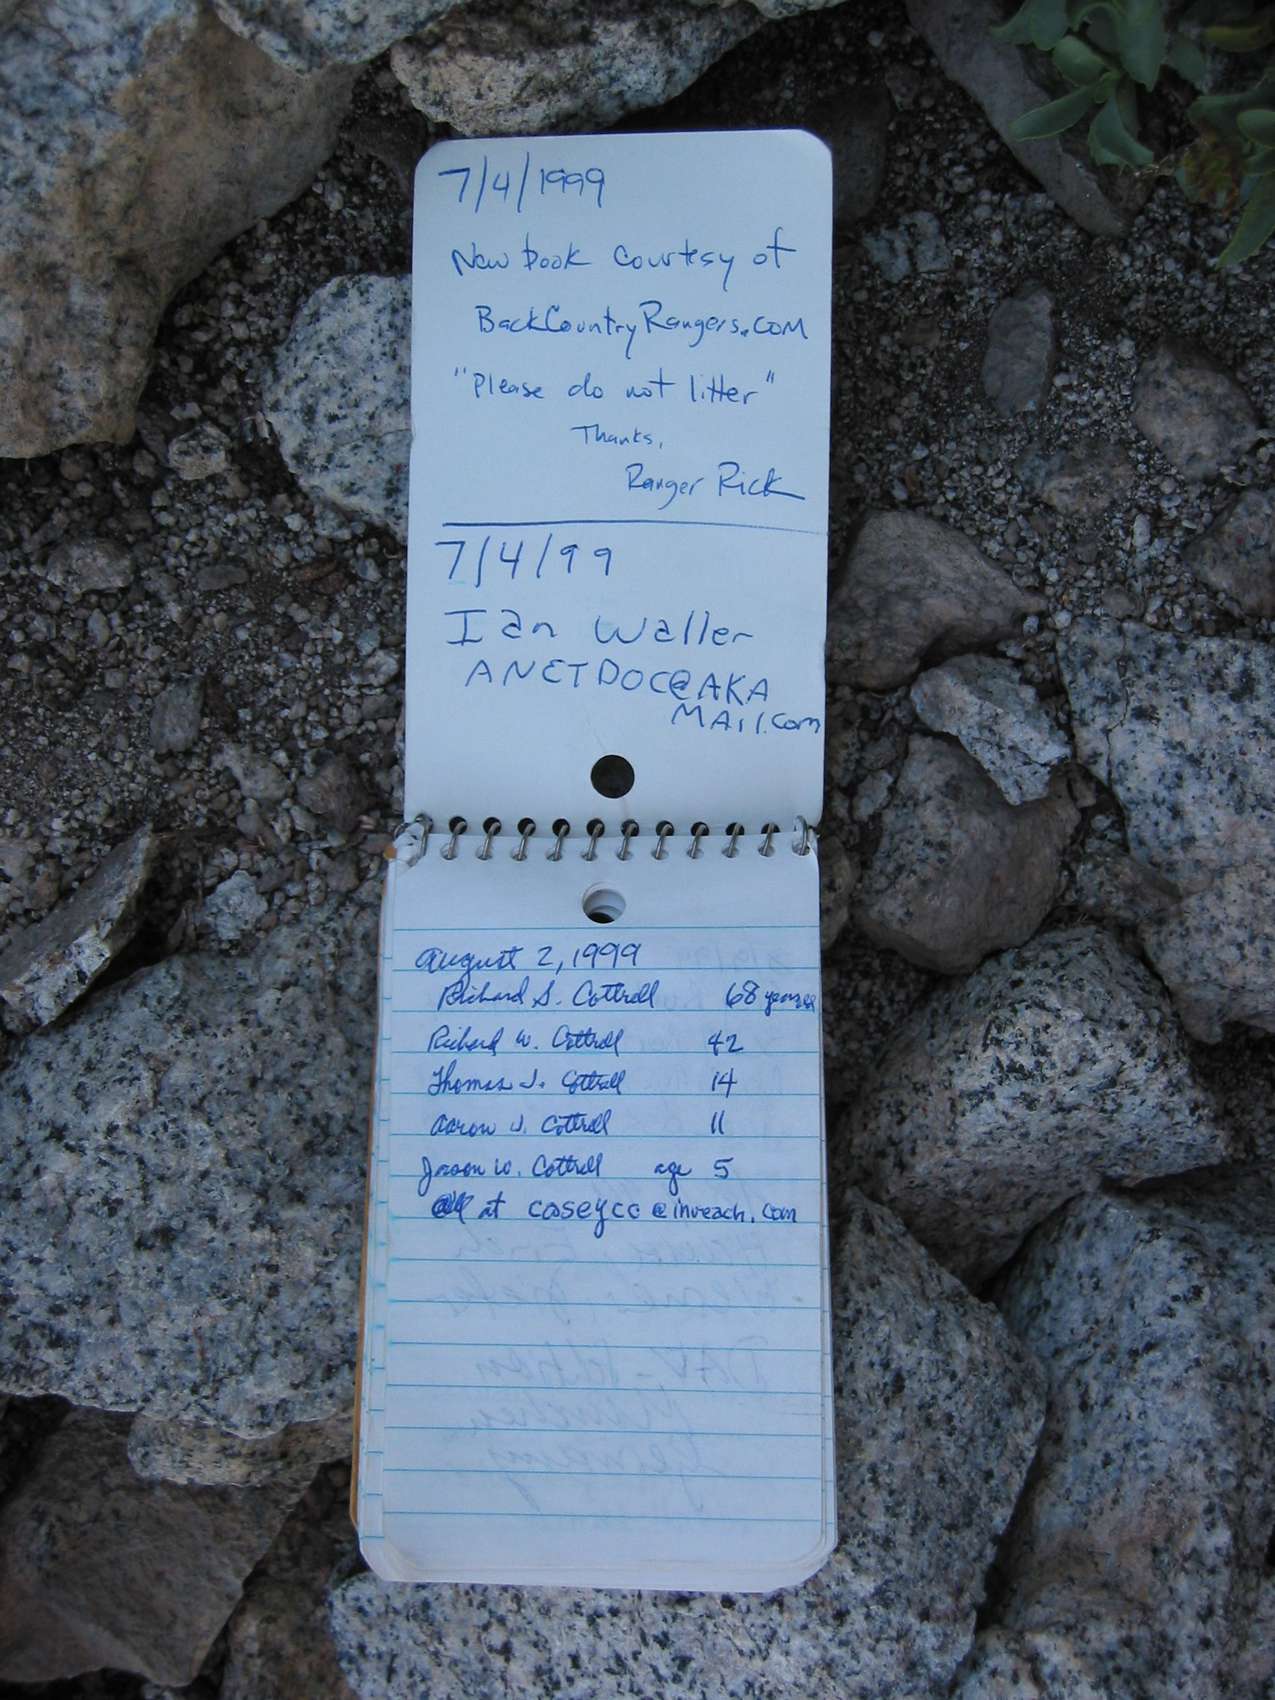 7/4/1999
New book courtesy of
BackCountryRangers.com
"Please do not litter"
Thanks,
Ranger Rick
7/4/99
Ian Waller
ANETDOC@AKA
MAil.com
August 2, 1999
Richard S. Cottrell 68 years
Richard W. Cottrell 42
Thomas J. Cottrell 14
Aaron J. Cottrell 11
Jason W. Cottrell age 5
at caseycc@inreach.com